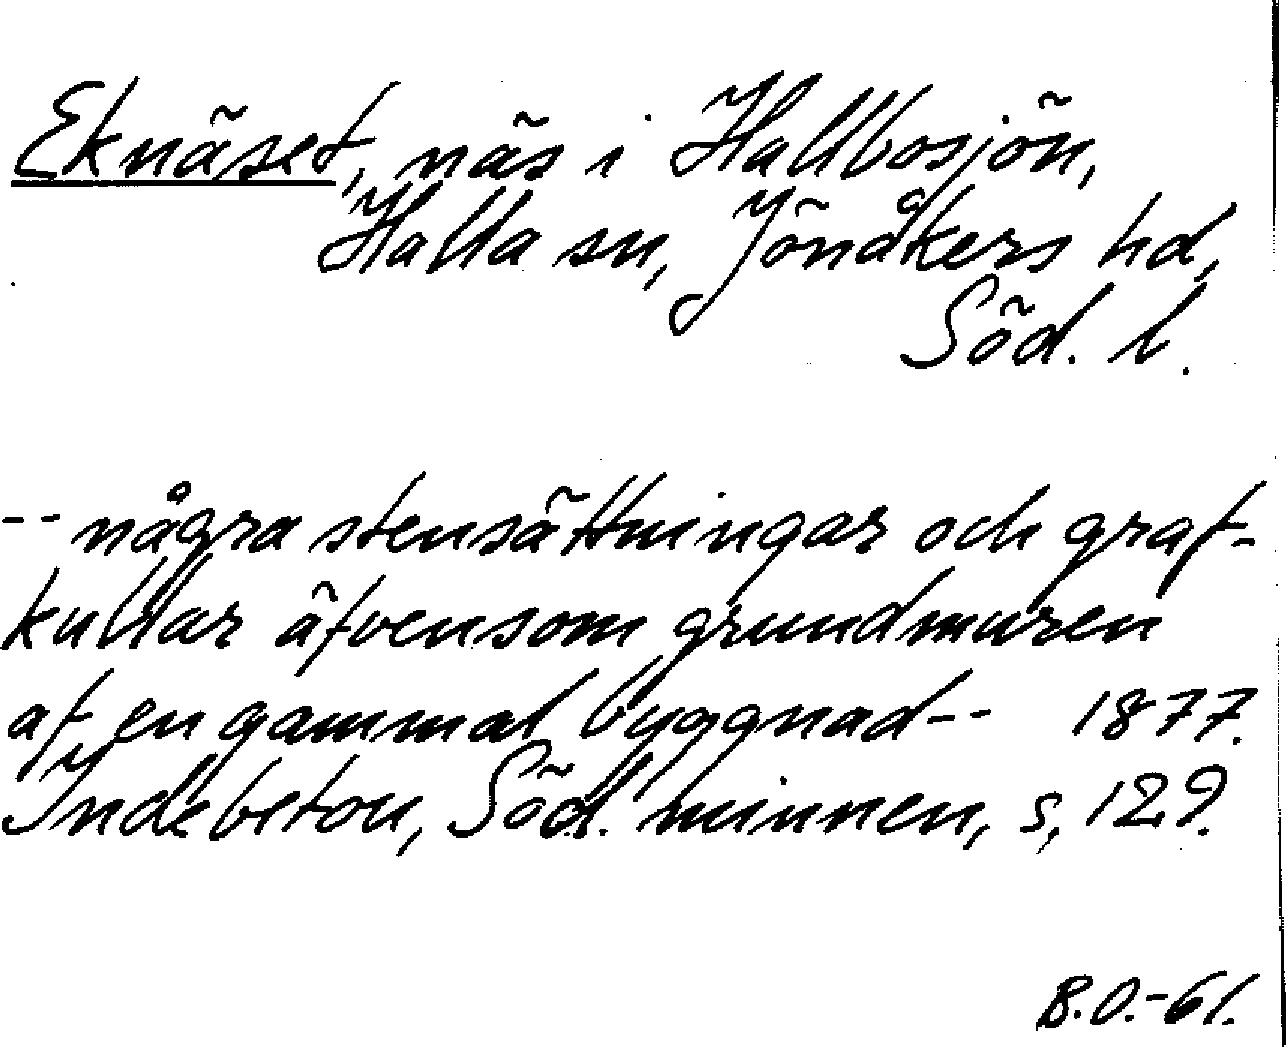 Eknäset, näs i Hallbosjön,
Halla sn, Jönåkers hd,
Söd. l.
-- några stensättningar och graf-
kullar äfvensom grundmuren
af en gammal byggnad -- 1877.
Indebetou, Söd. minnen, s, 129.
B.O.-61.